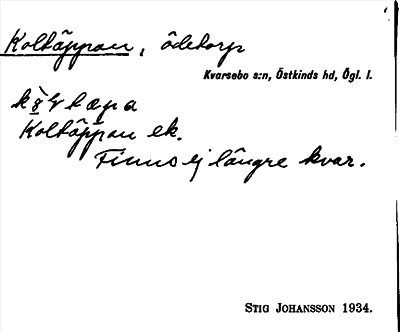 Koltäppan, ödetorp
Kvarsebo s:n, Östkinds hd, Ögl. l.
Koltäppan ek.
Finns ej längre kvar.
STIG JOHANSSON 1934.